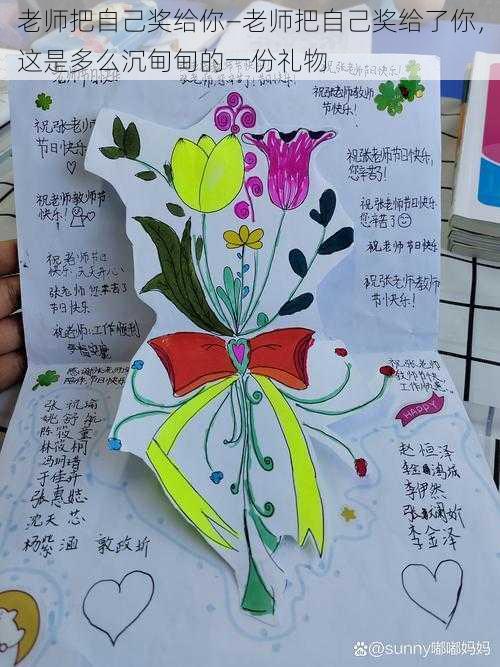 老师把自己奖给你–老师把自己奖给了你，
这是多么沉甸甸的一份礼物
祝张老师
节日快乐！
祝老师教师节
快乐！
祝老师节日
快乐，天天开心
张老师您辛苦了
节日快乐
祝老师：工作顺利
祝张老师教师
节快乐！
祝张老师节日快乐，
您辛苦了！
祝张老师节日快乐
您辛苦了
祝老师节日快乐
祝张老师教师
节快乐！
祝张老师
教师节快乐
HAPPY
陈筱童
林筱桐
冯玥晴
于佳卉
沈天芯
杨紫涵 敦政圻
赵恒泽
李伊然
李金泽
@sunny嘟嘟妈妈